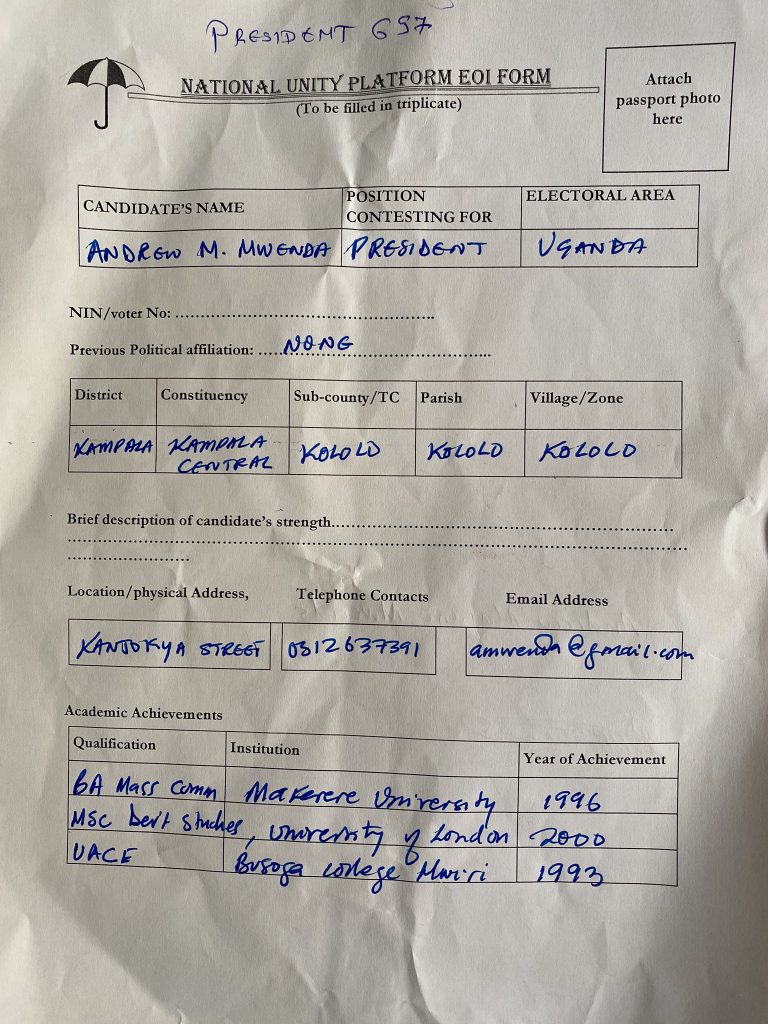 PRESIDENT 697
NATIONAL UNITY PLATFORM EOI FORM
(To be filled in triplicate)
Attach
passport photo
here
CANDIDATE'S NAME POSITION CONTESTING FOR ELECTORAL AREA
ANDREW M. MWENDA PRESIDENT UGANDA
NIN/voter No: ...............................................
Previous Political affiliation: .....NONE...............................
District Constituency Sub-county/TC Parish Village/Zone
KAMPALA KAMPALA CENTRAL KOLOLO KOLOLO KOLOLO
Brief description of candidate's strength................................................................
................................................................................................................
......................
Location/physical Address, Telephone Contacts Email Address
KANJOKYA STREET 0312637391 amwenda@gmail.com
Academic Achievements
Qualification Institution Year of Achievement
BA Mass Comm Makerere University 1996
MSC Dev't Studies, University of London 2000
UACE Busoga College Mwiri 1993